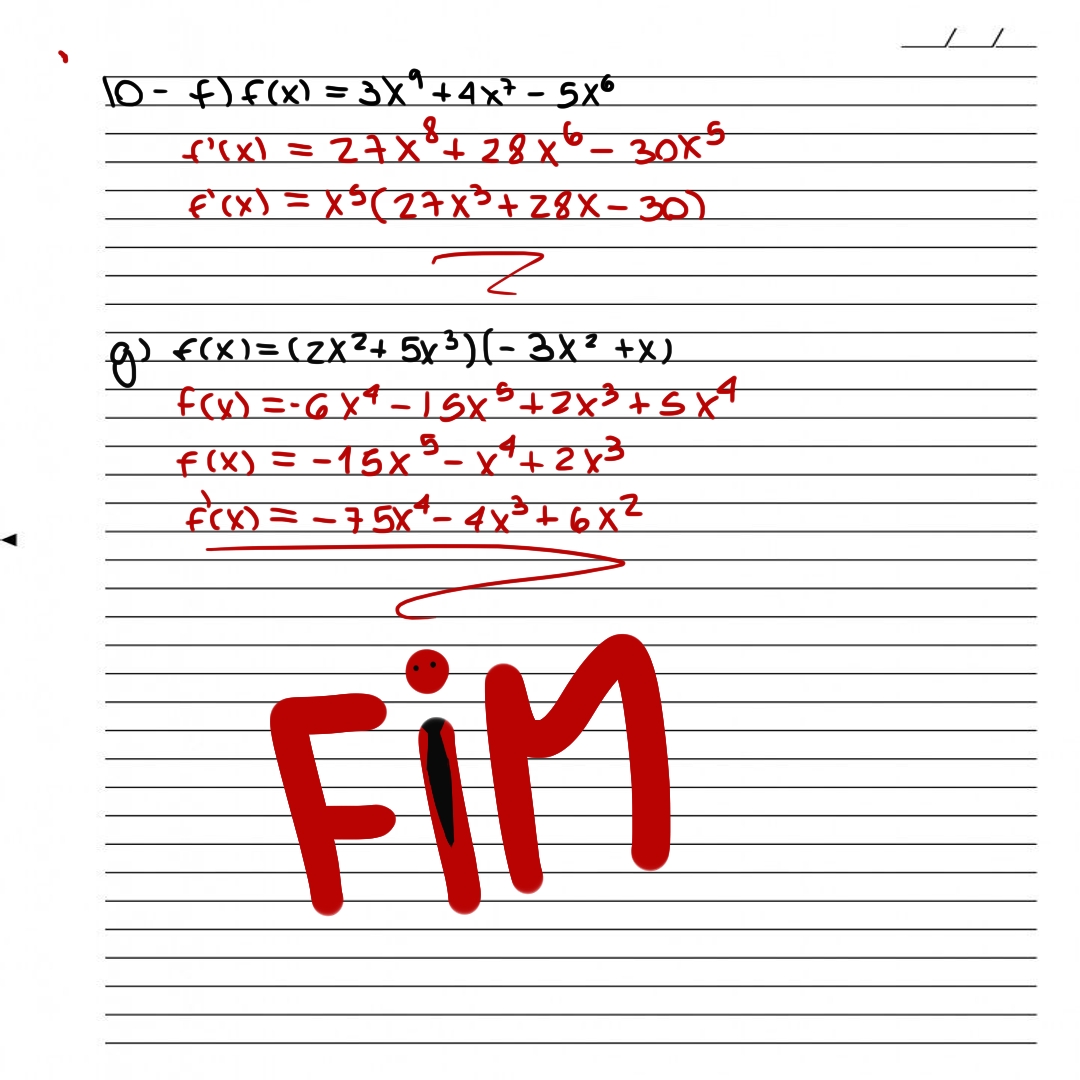 10 - f) f(x) = 3x⁹ + 4x⁷ - 5x⁶
f'(x) = 27x⁸ + 28x⁶ - 30x⁵
f'(x) = x⁵(27x³ + 28x - 30)
g) f(x) = (2x² + 5x³)(-3x² + x)
f(x) = -6x⁴ - 15x⁵ + 2x³ + 5x⁴
f(x) = -15x⁵ - x⁴ + 2x³
f'(x) = -75x⁴ - 4x³ + 6x²
FiM